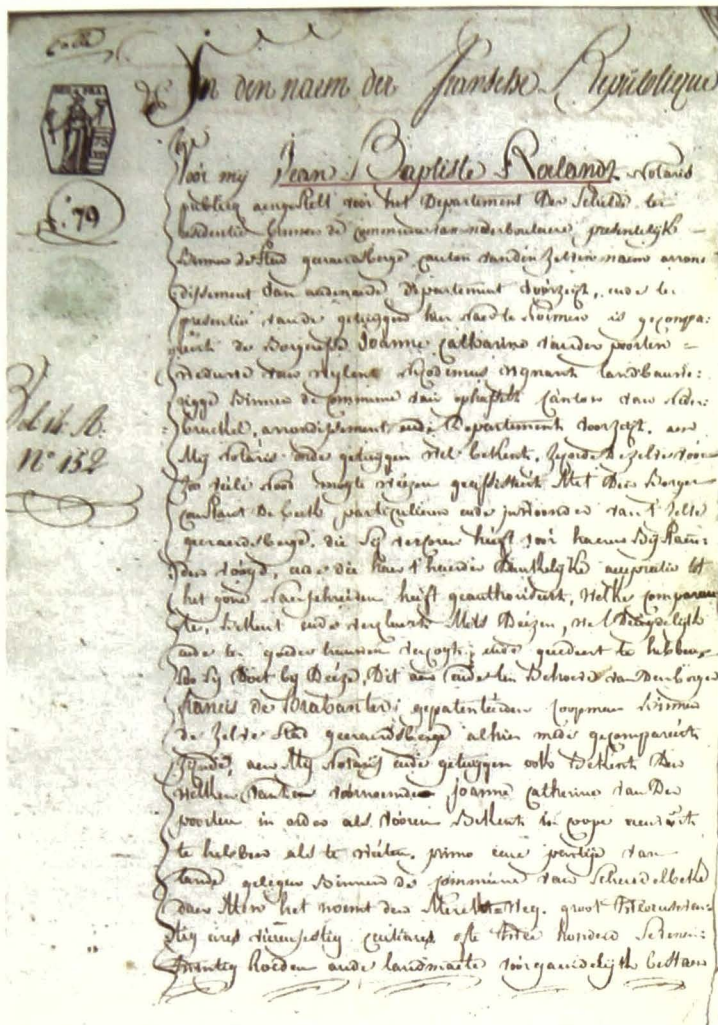 In den naem der Fransche Republieque
Voor my Jean Baptiste Rolandt Notaris
publicq aengestelt voor het Departement Der Schelde ter
residentie binnen de commune van nederboulaere, presentelijk
binnen de Stad geeraersberge canton van den zelven naeme arron=
dissement van audenaerde Departement voorzeyt, ende ter
presentie van de getuygen hier naer te noemen is gecompa=
reert de Borgeresse Joanne Catharine van der poorten
weduwe van wylent Nicodemus landbauwe=
rigge binnen de commune van ophasselt Canton van Neder=
brackel, arrondissement ende Departement voorzeyt, aen
My Notaris ende getuygen wel bekent, de zelve voor
zoo veele nood mogte weezen geassisteert Met Den Borger
Constant De particulieren ende inwoonder van t' zelve
geeraersberge, die sy vercoren heeft voor haeren bystaen=
den voogd, ende die haer t' hunder acceptatie tot
het gone naerschreven heeft geauthoriseert, welke comparan
te, bekent ende verclaert Mits Deezen, wel Deugdelijk
ende te goeder trauwen vercogt ende gecedeert te hebben
soo sy Doet by Deeze, Dit aen ende ten Behoeve van Den borger
francis de Brabanter gepatenteerden coopman binnen
de zelve Stad geeraersberge alhier mede gecompareert
zynde, aen My Notaris ende getuygen ook bekent Den
welken van de voornoemde Joanne Catherine van Der
poorten in qualiteit als vooren bekent in coope
te hebben als te weten, primo eene partije van
lande gelegen binnen de commune van Scheldelbeke
dan Men het noemt den Mere weg. groot
tig ares vierensestig centiares ofte twee honderd seven=
twintig roeden oude landmaete voorgaendelijk bestaen
79
Vol 14. A.
N° 152